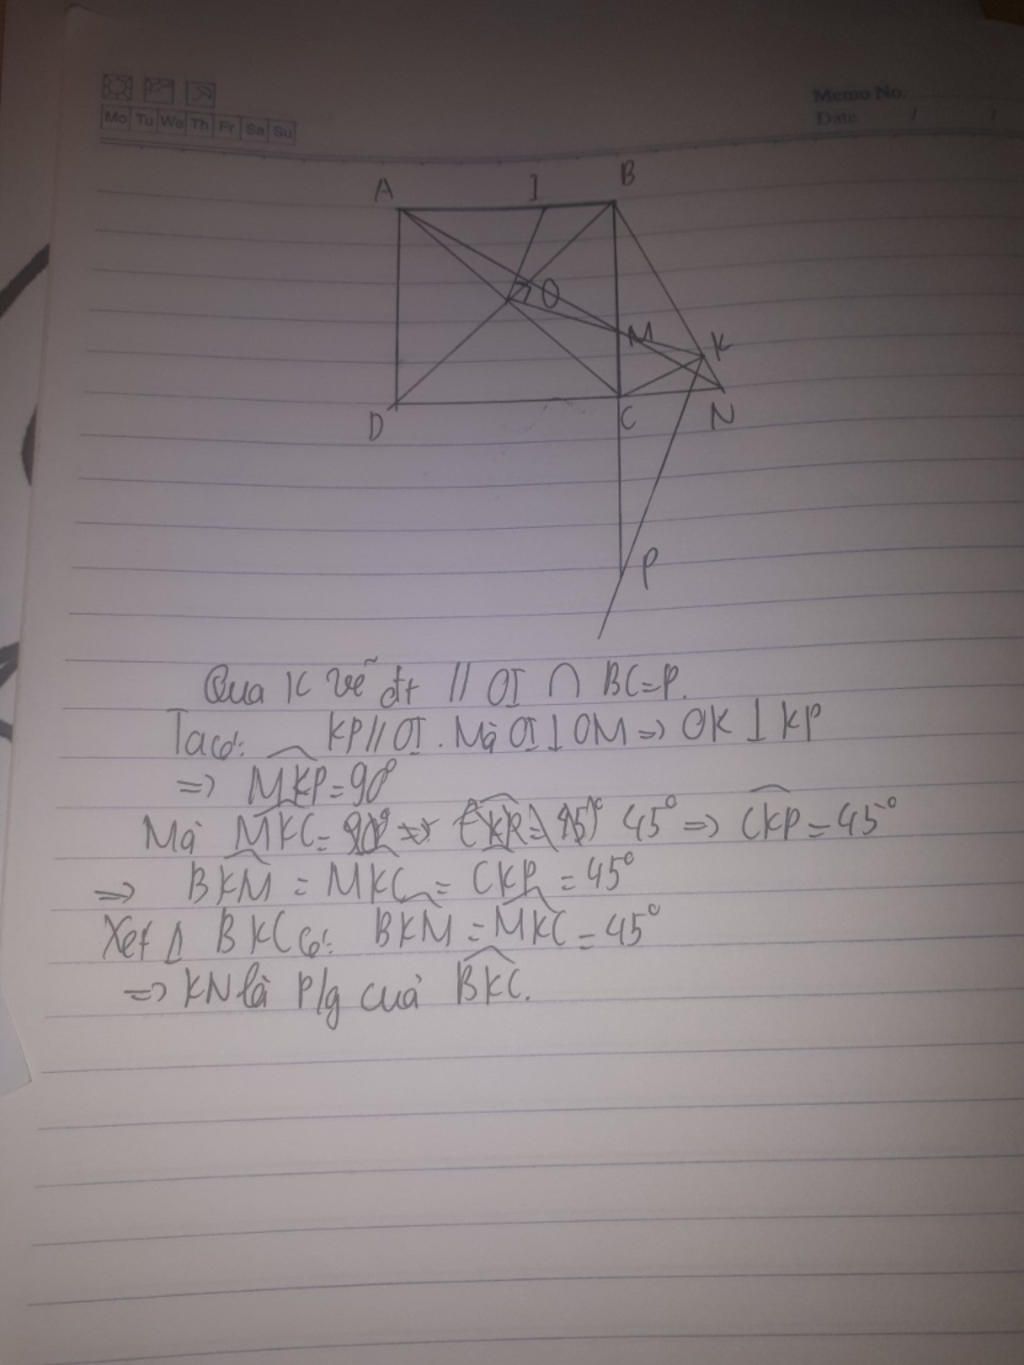 Memo No.
Mo Tu We Th Fr Sa Su
Date / /
A I B
O
M K
D C N
P
Qua K vẽ đt // OI ∩ BC=P.
Ta có: KP // OI. Mà OI ⊥ OM => OK ⊥ KP
=> MKP = 90°
Mà MKC = 45° => CKP = 45°
=> BKM = MKC = CKP = 45°
Xét Δ BKC có: BKM = MKC = 45°
=> KN là p/g cuả BKC.